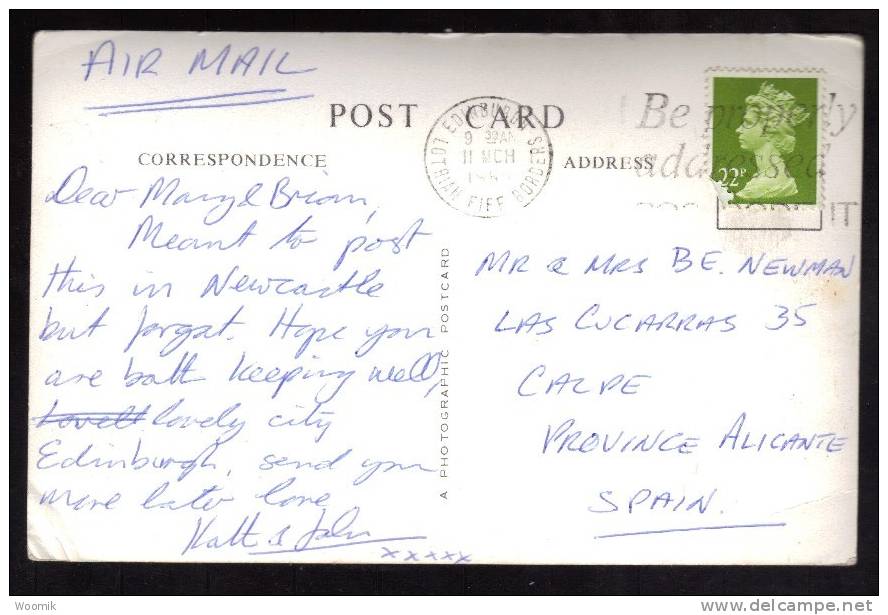 AIR MAIL
POST CARD
CORRESPONDENCE
ADDRESS
EDINBURGH
LOTHIAN FIFE BORDERS
9 AM
11 MCH
Be properly
addressed
IT
22P
Dear Mary & Brian,
Meant to post
this in Newcastle
but forgot. Hope you
are both keeping well,
lovely city
Edinburgh, send you
more later love
& John
xxxxx
A PHOTOGRAPHIC POSTCARD
MR & MRS B E. NEWMAN
LAS CUCARRAS 35
CALPE
PROVINCE ALICANTE
SPAIN.
Woomik
delcampe.net